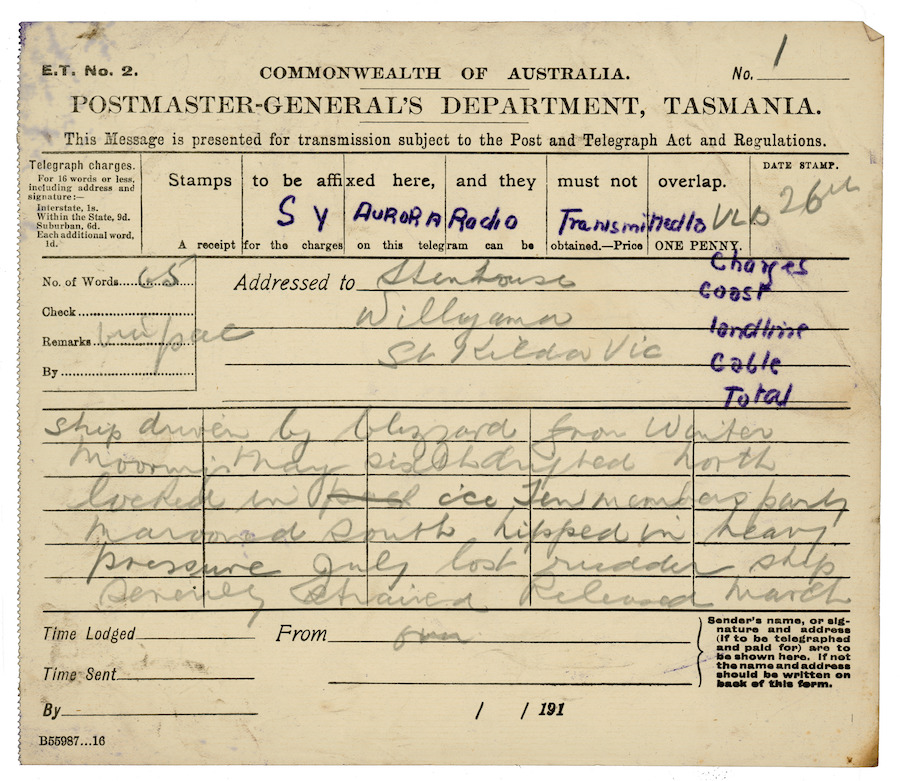 E.T. No. 2.
COMMONWEALTH OF AUSTRALIA.
No. 1
POSTMASTER-GENERAL'S DEPARTMENT, TASMANIA.
This Message is presented for transmission subject to the Post and Telegraph Act and Regulations.
Telegraph charges.
For 16 words or less, including address and signature:—
Interstate, 1s.
Within the State, 9d.
Suburban, 6d.
Each additional word, 1d.
Stamps to be affixed here, and they must not overlap.
DATE STAMP.
26th
SY AURORA Radio Transmitted to VLD
A receipt for the charges on this telegram can be obtained.—Price ONE PENNY.
Charges
Coast
landline
Cable
Total
No. of Words 65
Check
Remarks
By
Addressed to Stenhouse
Willyama
St Kilda Vic
ship driven by blizzard from Winter
Moorings May sixth drifted north
locked in pack ice Ten members party
marooned south nipped in heavy
pressure July lost rudder ship
severely strained Released March
Time Lodged
From
Time Sent
By
/ / 191
Sender's name, or signature and address (if to be telegraphed and paid for) are to be shown here. If not the name and address should be written on back of this form.
B55987...16